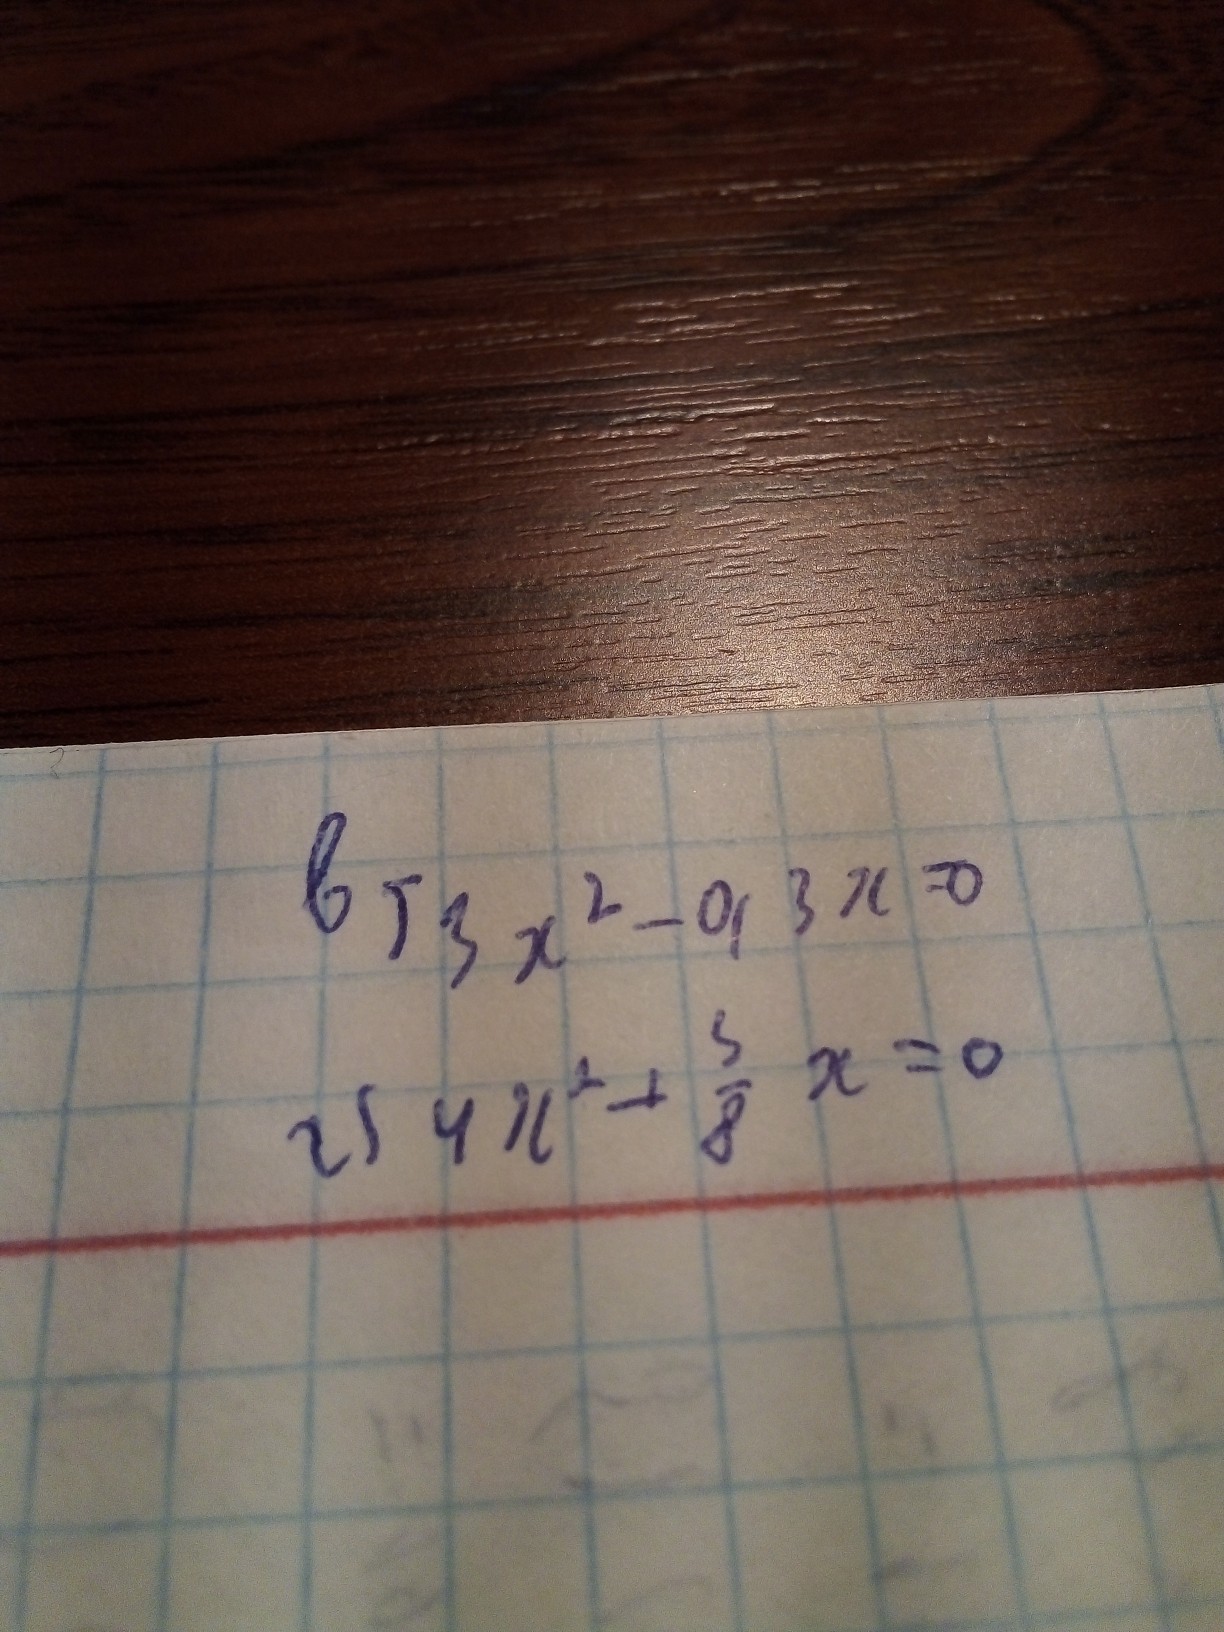 в) 3x² - 0,3x = 0
г) 4x² + 5/8 x = 0